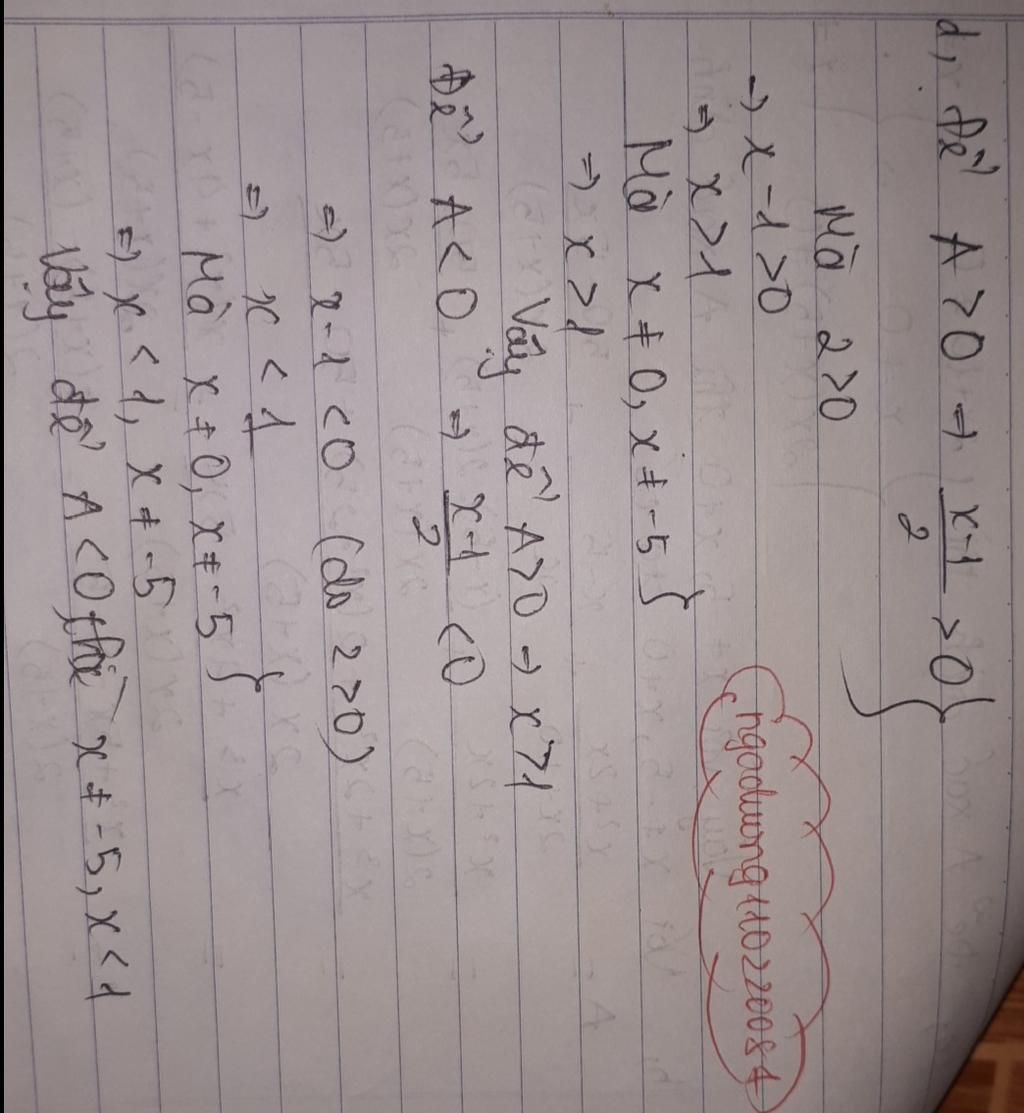 d, Để A > 0 → x-1/2 > 0 }
Mà 2>0
→ x - 1 > 0
=> x > 1
Mà x ≠ 0, x ≠ -5 }
=> x > 1
Vậy để A>0 → x>1
Để A < 0 => x-1/2 < 0
=> x - 1 < 0 (do 2>0)
=> x < 1
Mà x ≠ 0, x ≠ -5 }
=> x < 1, x ≠ -5
Vậy để A < 0 thì x ≠ -5, x < 1